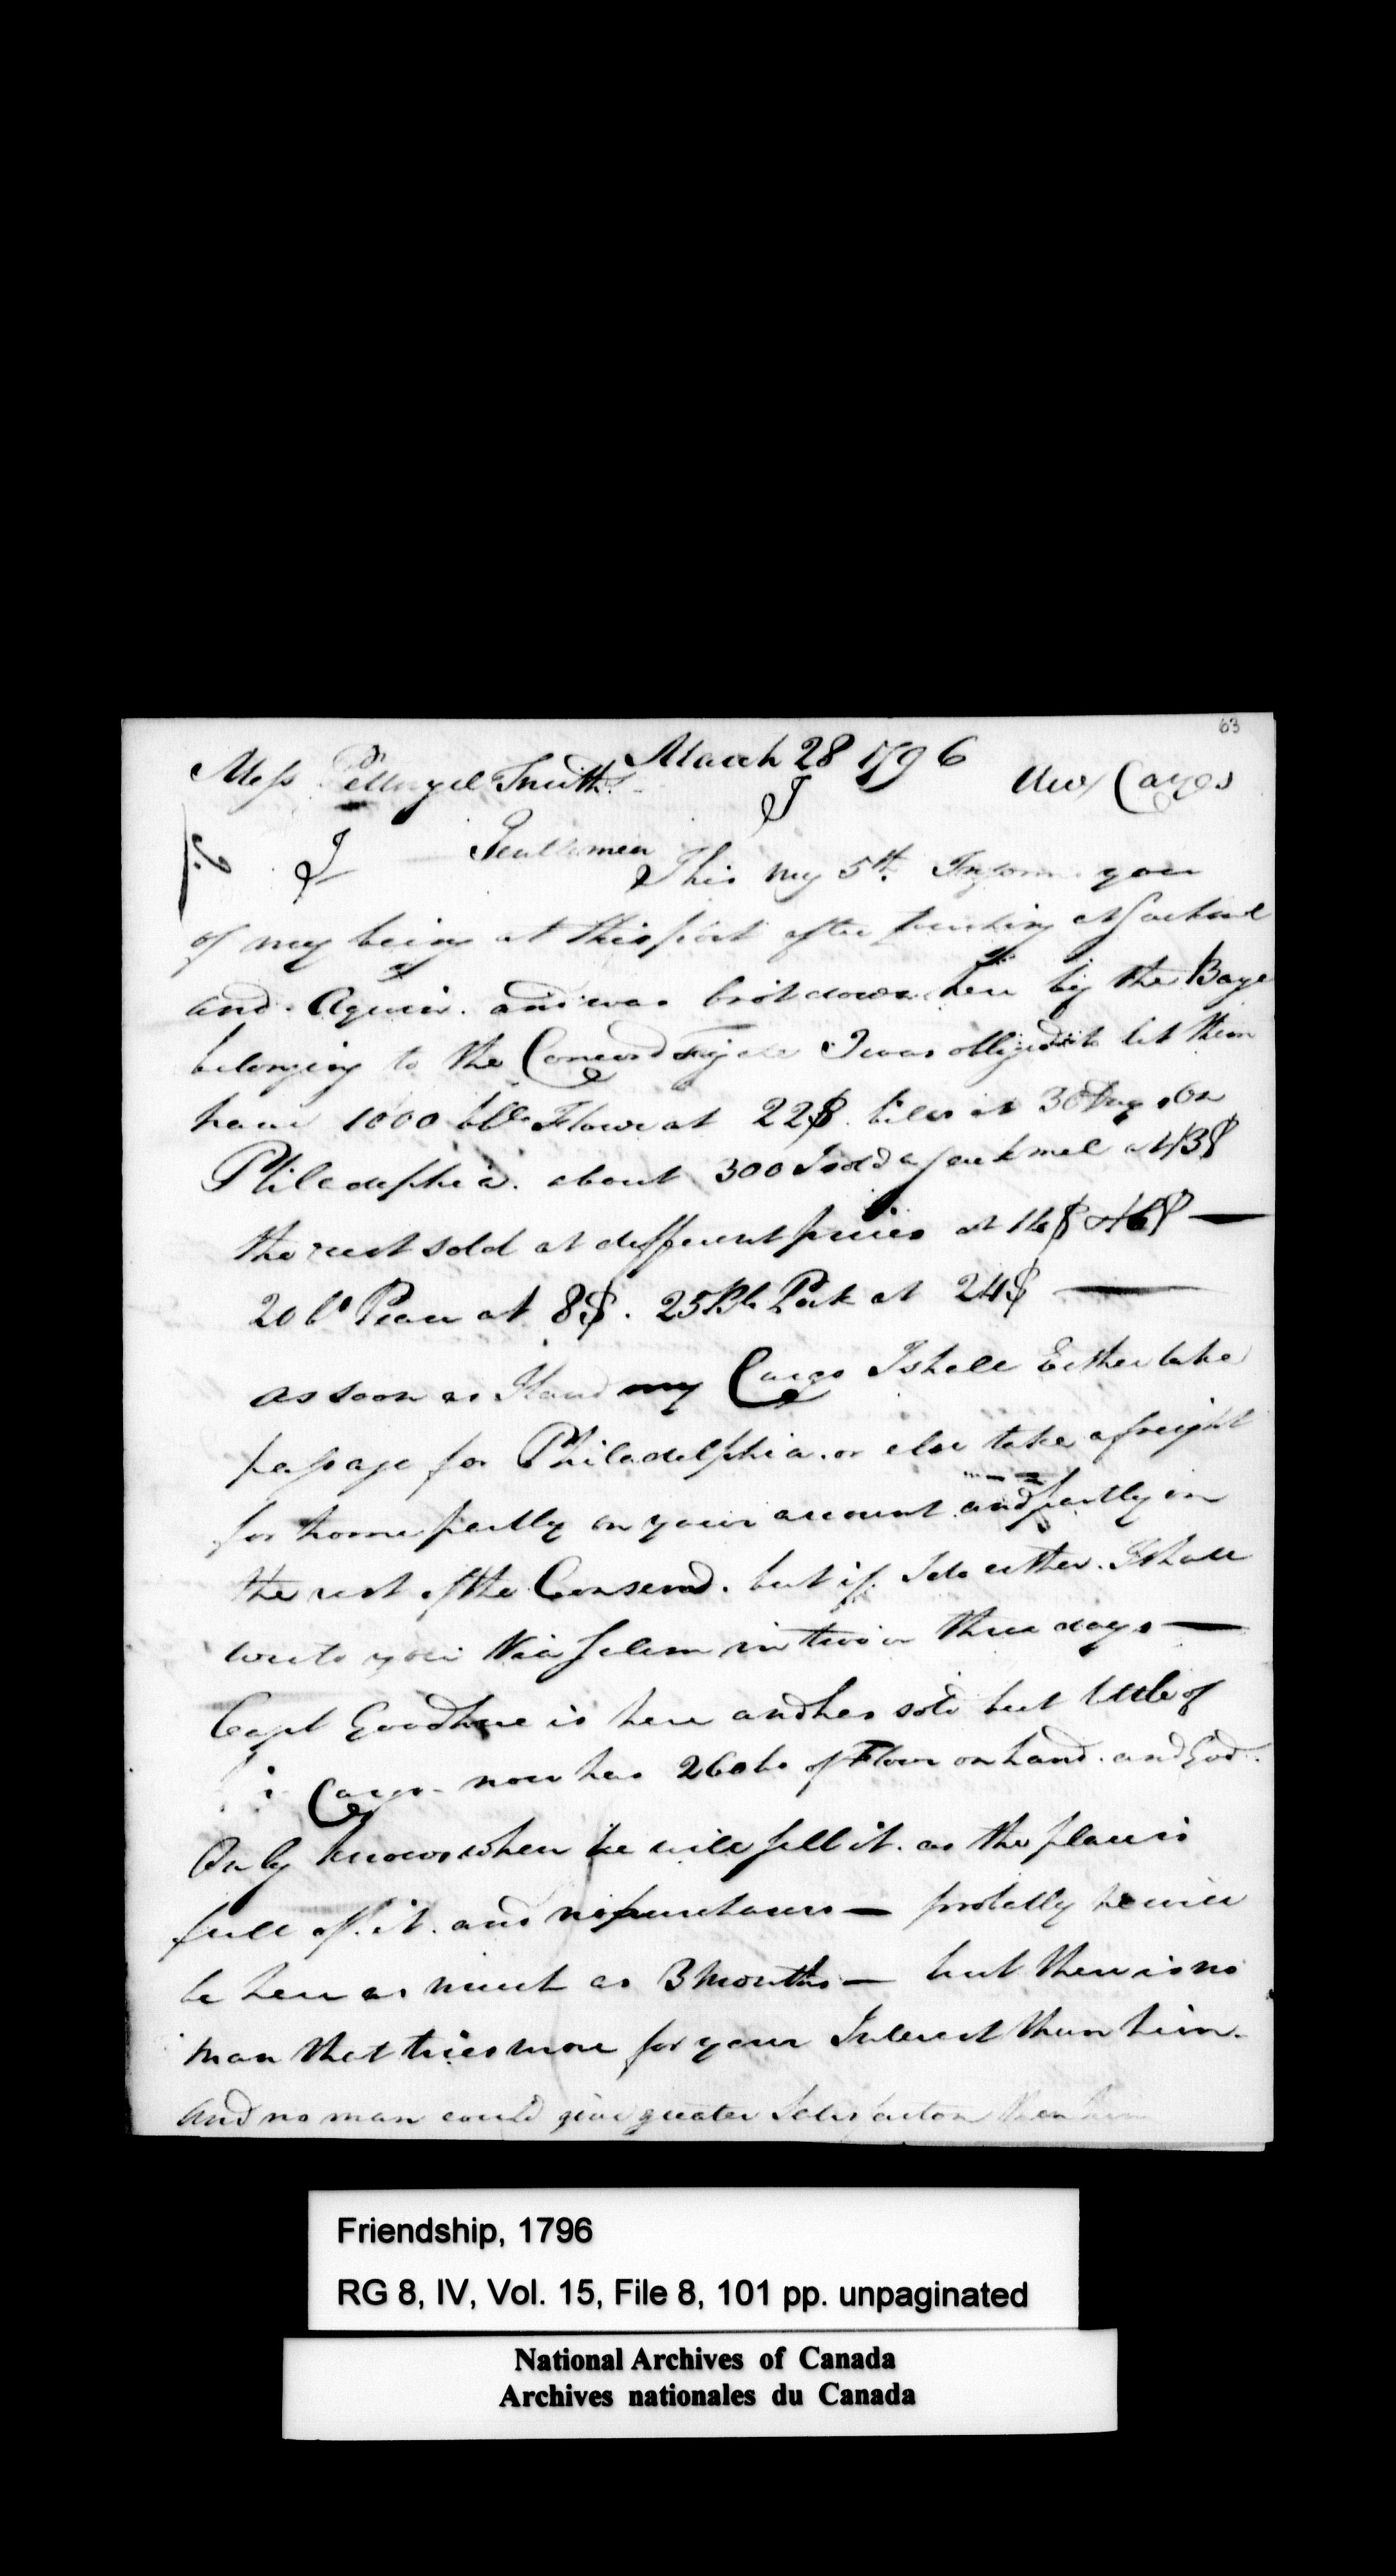 63
March 28 1796
Mess Pettingel Smith
Aux Cayes
Gentlemen
This my 5th Inform you
of my being at this port after touching at Jackmel
and Aquin. and was brot down here by the Barge
belonging to the Concord I was obliged to let them
have 1000 bbls Flour at 22$ bills at 30 Days on
Philadelphia. about 300 I sold a Jackmel at 13$
the rest sold at different prices at 14$ 
20 Peas at 8$. 25 Bls Pork at 24$
as soon as I land my Cargo I shall Either take
passage for Philadelphia. or else take a freight
for home partly on your account and partly on
the rest of the but if I do either. I shall
write you Via Salem in two or three days
Capt Goodhue is here and has sold but little of
Cargo now has of Flour on hand. and God
Only knows when he will sell it. as the place is
full of it. and no purchasers — probelly he will
be here as much as 3 Months — but there is no
Man that tries more for your Interest than him.
and no man could give greater Satisfaction than him
Friendship, 1796
RG 8, IV, Vol. 15, File 8, 101 pp. unpaginated
National Archives of Canada
Archives nationales du Canada